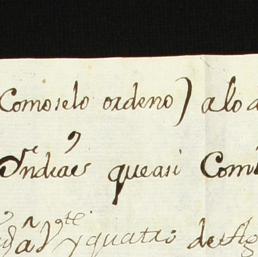 Comoselo ordeno) alo
Yndias queasi Com
y quatro de